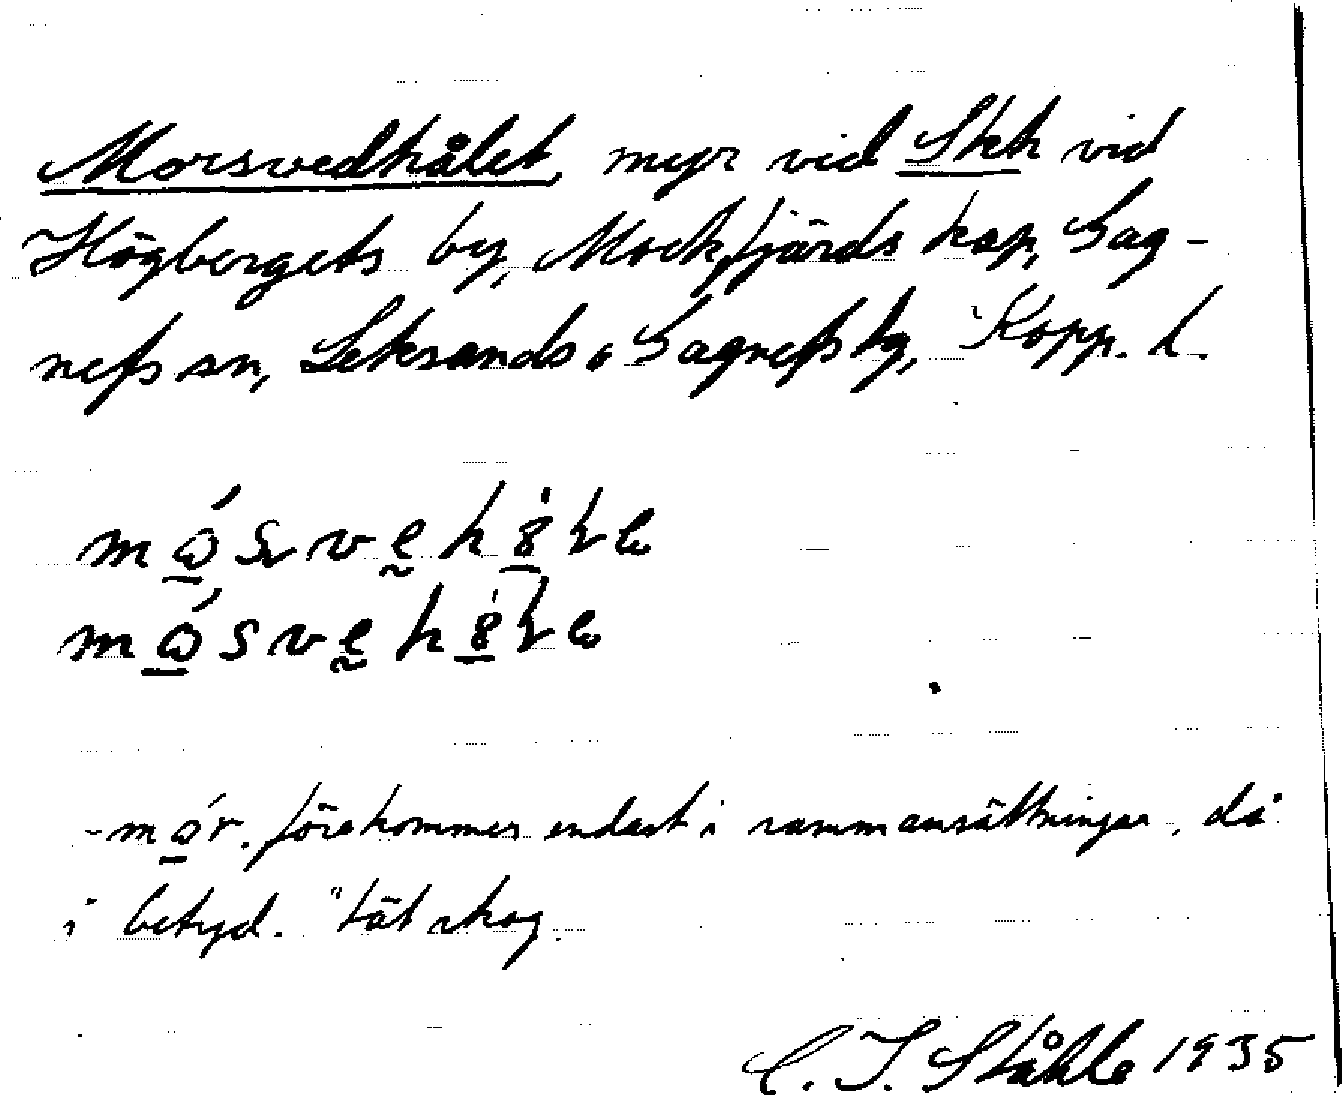 Morsvedhålet, myr vid Stek vid
Högbergets by, Mockfjärds kap, Gag-
nefs sn, Leksands o Gagnefs tg, Kopp. l.
förekommer endast i sammansättningar, då
i betyd. "tät skog.
C. I. Ståhle 1935